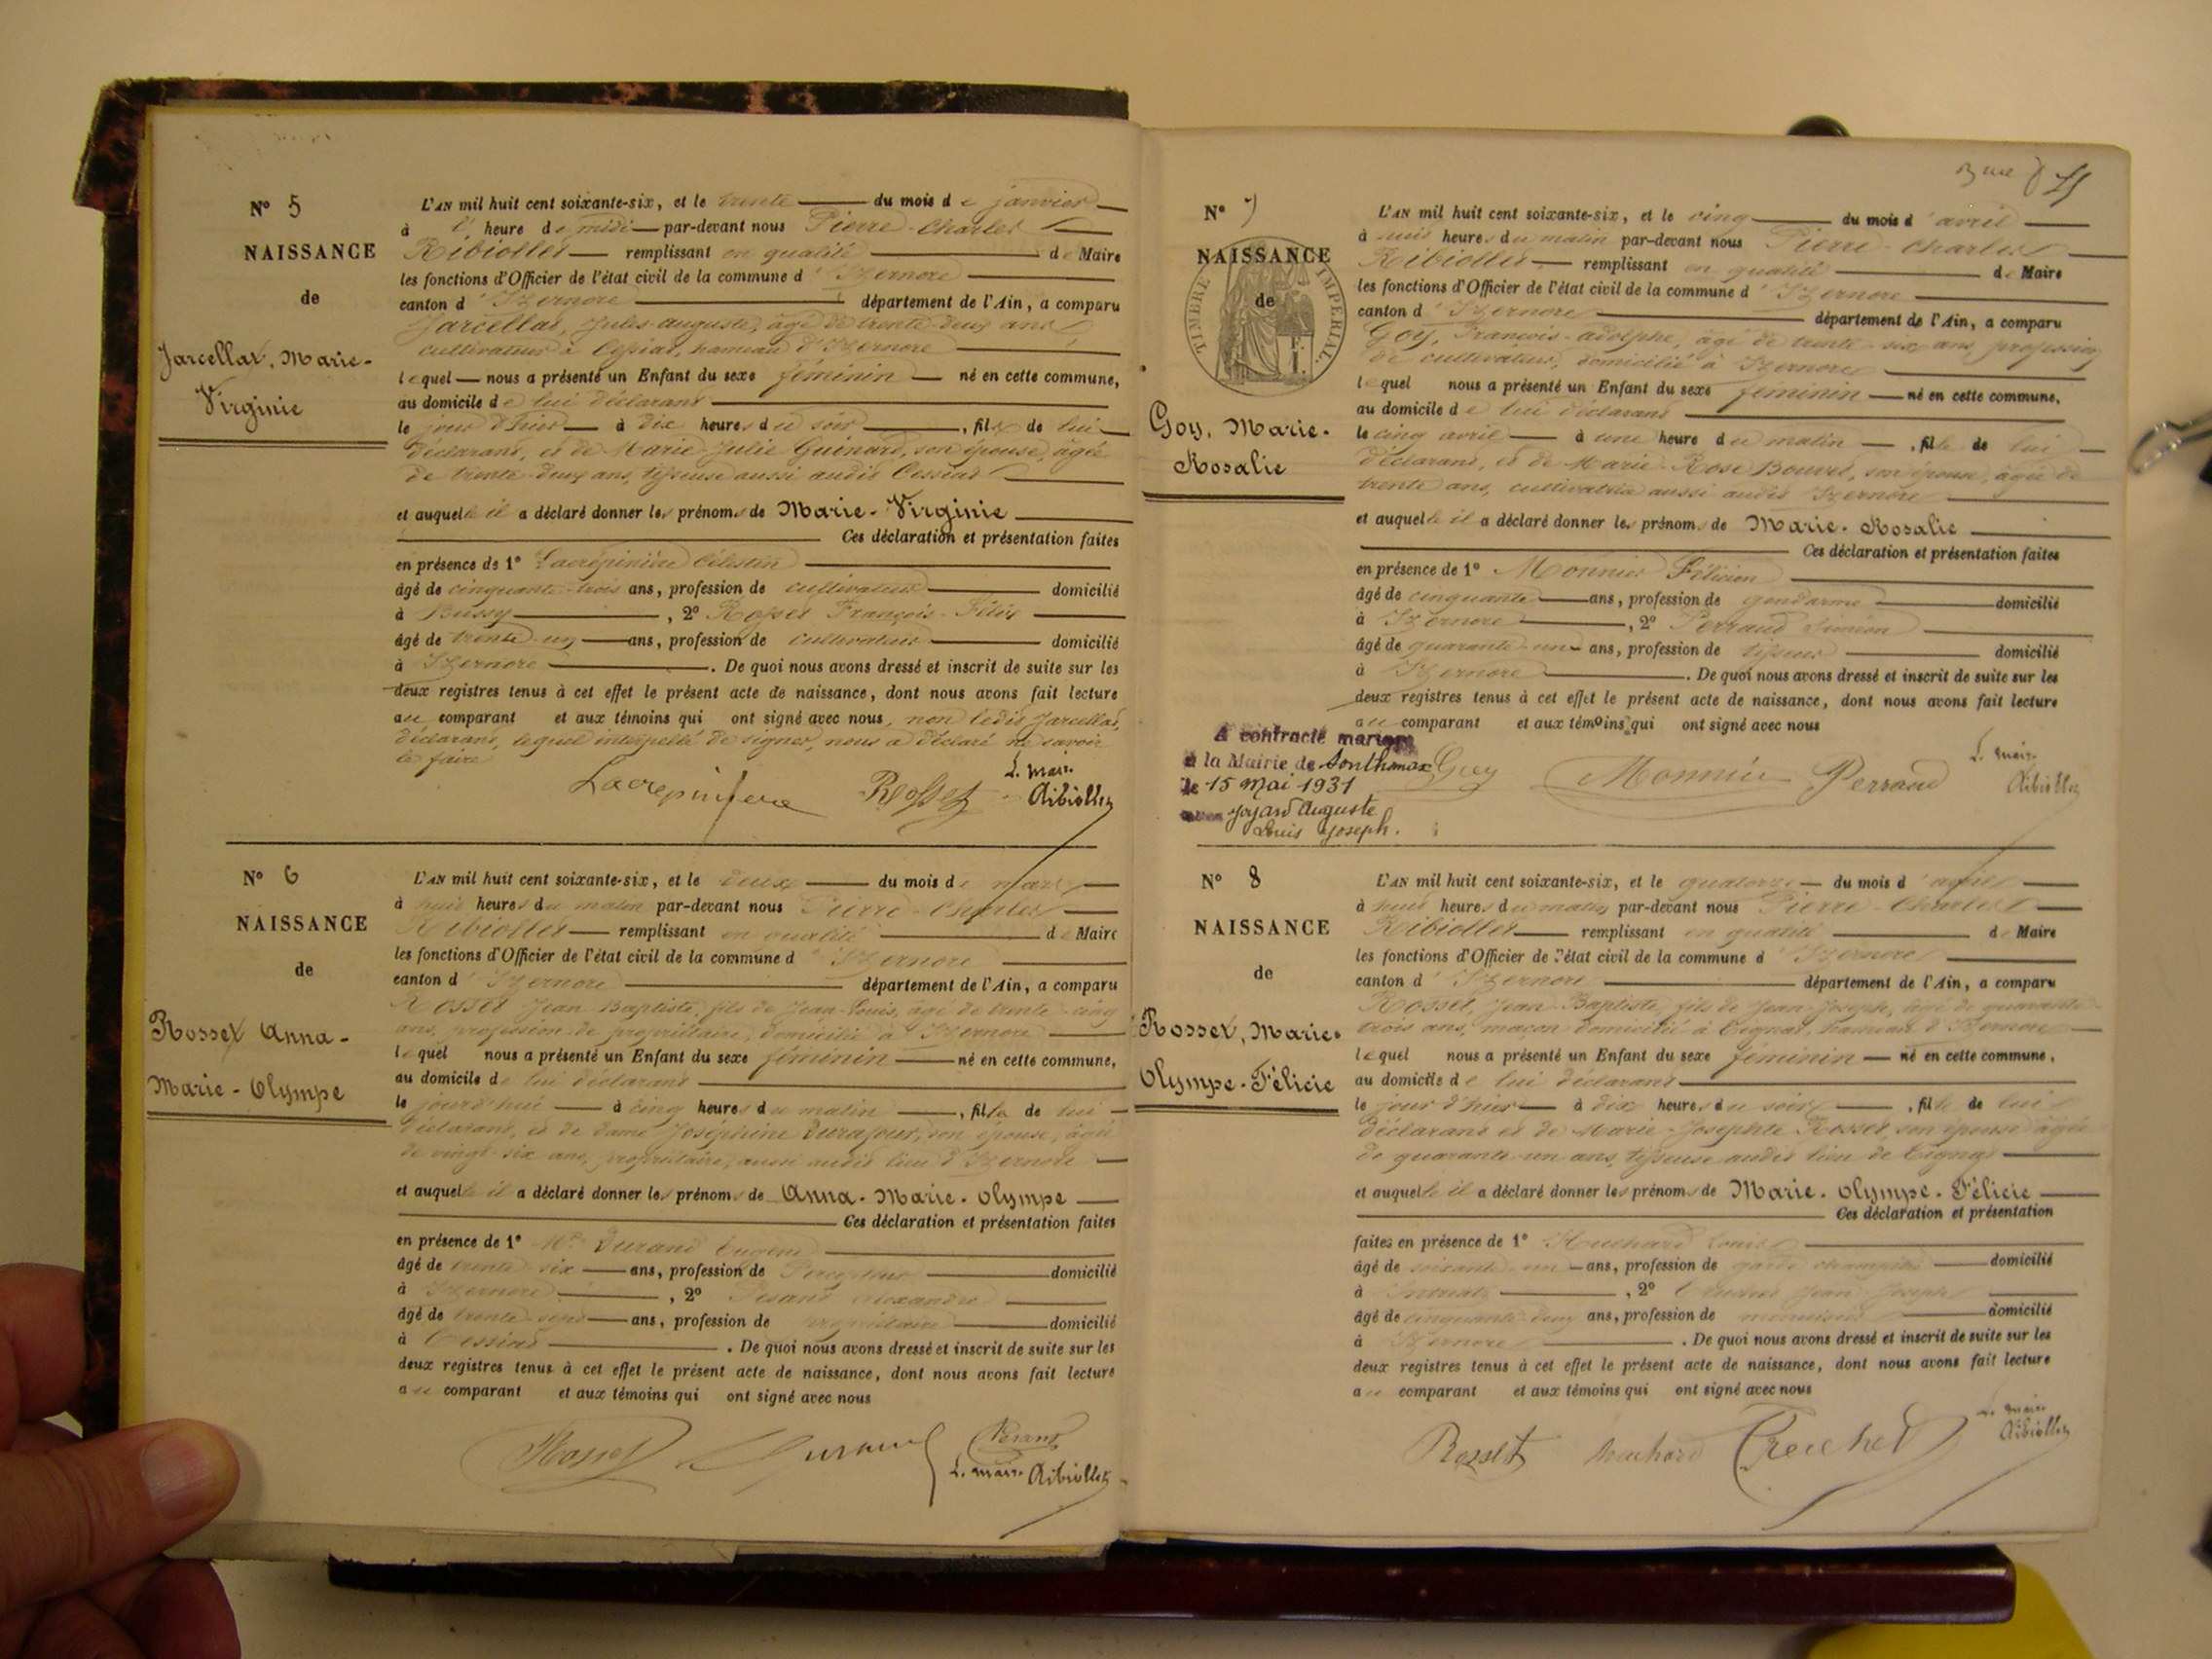 Nº 5
NAISSANCE
de
Jarcellat, Marie-
Virginie
L'AN mil huit cent soixante-six, et le trente du mois de janvier
à l' heure de midi par-devant nous Pierre-Charles
Ribiollet remplissant en qualité de Maire
les fonctions d'Officier de l'état civil de la commune d'Izernore
canton d'Izernore département de l'Ain, a comparu
Jarcellat, Jules-auguste, âgé de trente-deux ans
cultivateur à Cessiat, hameau d'Izernore
lequel nous a présenté un Enfant du sexe féminin né en cette commune,
au domicile de lui déclarant
le jour d'hier à dix heures du soir, fille de lui
déclarant, et de Marie-Julie Guinard, son épouse, âgée
de trente-deux ans, tisseuse aussi audit Cessiat
et auquel le il a déclaré donner les prénoms de Marie-Virginie
Ces déclaration et présentation faites
en présence de 1º Lacrépinière Célestin
âgé de cinquante-trois ans, profession de cultivateur domicilié
à Bussy, 2º Rosset François-
âgé de trente-un ans, profession de cultivateur domicilié
à Izernore. De quoi nous avons dressé et inscrit de suite sur les
deux registres tenus à cet effet le présent acte de naissance, dont nous avons fait lecture
au comparant et aux témoins qui ont signé avec nous, non ledit Jarcellat,
déclarant, lequel interpellé de signer, nous a déclaré ne savoir
le faire
Lacrepiniere Rosset L. maire Ribiollet
Nº 6
NAISSANCE
de
Rosset Anna-
Marie-Olympe
L'AN mil huit cent soixante-six, et le deux du mois de mars
à huit heures du matin par-devant nous Pierre-Charles
Ribiollet remplissant en qualité de Maire
les fonctions d'Officier de l'état civil de la commune d'Izernore
canton d'Izernore département de l'Ain, a comparu
Rosset Jean Baptiste, fils de Jean-Louis, âgé de trente-cinq
ans, profession de propriétaire, domicilié à Izernore
lequel nous a présenté un Enfant du sexe féminin né en cette commune,
au domicile de lui déclarant
le jourd'hui à cinq heures du matin, fille de lui
déclarant, et de dame Joséphine Durafour, son épouse, âgée
de vingt-six ans, propriétaire, aussi audit lieu d'Izernore
et auquel le il a déclaré donner les prénoms de Anna-Marie-Olympe
Ces déclaration et présentation faites
en présence de 1º Mr Durand Eugène
âgé de trente-six ans, profession de Percepteur domicilié
à Izernore, 2º Alexandre
âgé de trente-sept ans, profession de propriétaire domicilié
à Cessiat. De quoi nous avons dressé et inscrit de suite sur les
deux registres tenus à cet effet le présent acte de naissance, dont nous avons fait lecture
au comparant et aux témoins qui ont signé avec nous
Rosset Durand L. maire Ribiollet
Nº 7
NAISSANCE
de
TIMBRE IMPERIAL
Goy, Marie-
Rosalie
L'AN mil huit cent soixante-six, et le cinq du mois d'avril
à huit heures du matin par-devant nous Pierre-Charles
Ribiollet remplissant en qualité de Maire
les fonctions d'Officier de l'état civil de la commune d'Izernore
canton d'Izernore département de l'Ain, a comparu
Goy, François-adolphe, âgé de trente-six ans, profession
de cultivateur, domicilié à Izernore
lequel nous a présenté un Enfant du sexe féminin né en cette commune,
au domicile de lui déclarant
le cinq avril à une heure du matin, fille de lui
déclarant, et de Marie-Rose Bouvet, son épouse, âgée de
trente ans, cultivatrice aussi audit Izernore
et auquel le il a déclaré donner les prénoms de Marie-Rosalie
Ces déclaration et présentation faites
en présence de 1º Monnier Félicien
âgé de cinquante ans, profession de gendarme domicilié
à Izernore, 2º Perraud Siméon
âgé de quarante-un ans, profession de tisseur domicilié
à Izernore. De quoi nous avons dressé et inscrit de suite sur les
deux registres tenus à cet effet le présent acte de naissance, dont nous avons fait lecture
au comparant et aux témoins qui ont signé avec nous
A contracté mariage
à la Mairie de Sonthonax
le 15 Mai 1931
avec Joyard Auguste
Louis Joseph.
Goy Monnier Perraud L. maire Ribiollet
Nº 8
NAISSANCE
de
Rosset, Marie-
Olympe-Félicie
L'AN mil huit cent soixante-six, et le quatorze du mois d'avril
à huit heures du matin par-devant nous Pierre-Charles
Ribiollet remplissant en qualité de Maire
les fonctions d'Officier de l'état civil de la commune d'Izernore
canton d'Izernore département de l'Ain, a comparu
Rosset, Jean-Baptiste, fils de Jean-Joseph, âgé de quarante-
trois ans, maçon domicilié à Tignat hameau d'Izernore
lequel nous a présenté un Enfant du sexe féminin né en cette commune,
au domicile de lui déclarant
le jour d'hier à dix heures du soir, fille de lui
déclarant et de Marie-Josephte Rosset, son épouse âgée
de quarante-un ans, tisseuse audit lieu de Tignat
et auquel le il a déclaré donner les prénoms de Marie-Olympe-Félicie
Ces déclaration et présentation
faites en présence de 1º Huchard Louis
âgé de soixante-un ans, profession de garde champêtre domicilié
à Intriat, 2º Jean Joseph
âgé de cinquante-deux ans, profession de menuisier domicilié
à Izernore. De quoi nous avons dressé et inscrit de suite sur les
deux registres tenus à cet effet le présent acte de naissance, dont nous avons fait lecture
au comparant et aux témoins qui ont signé avec nous
Rosset huchard L. maire Ribiollet